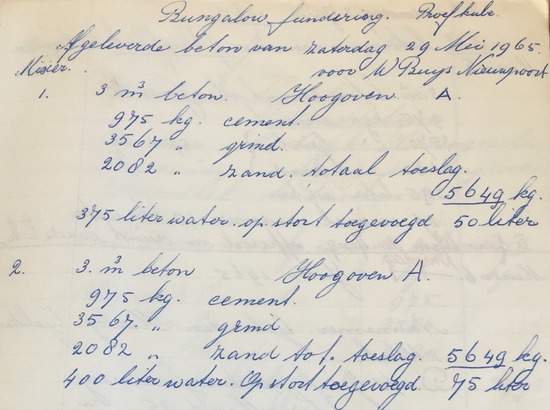 Bungalow fundering. Proefkube.
Afgeleverde beton van Zaterdag 29 Mei 1965.
Mixer. voor W Buys Nieuwpoort
1. 3 m³ beton. Hoogoven A.
975 kg. cement.
3567 " grind.
2082 " zand. totaal toeslag.
5649 kg.
375 liter water. op stort toegevoegd 50 liter
2. 3. m³ beton Hoogoven A.
975 kg. cement.
3567. " grind
2082 " zand tot. toeslag. 5649 kg.
400 liter water. Op stort toegevoegd. 75 liter